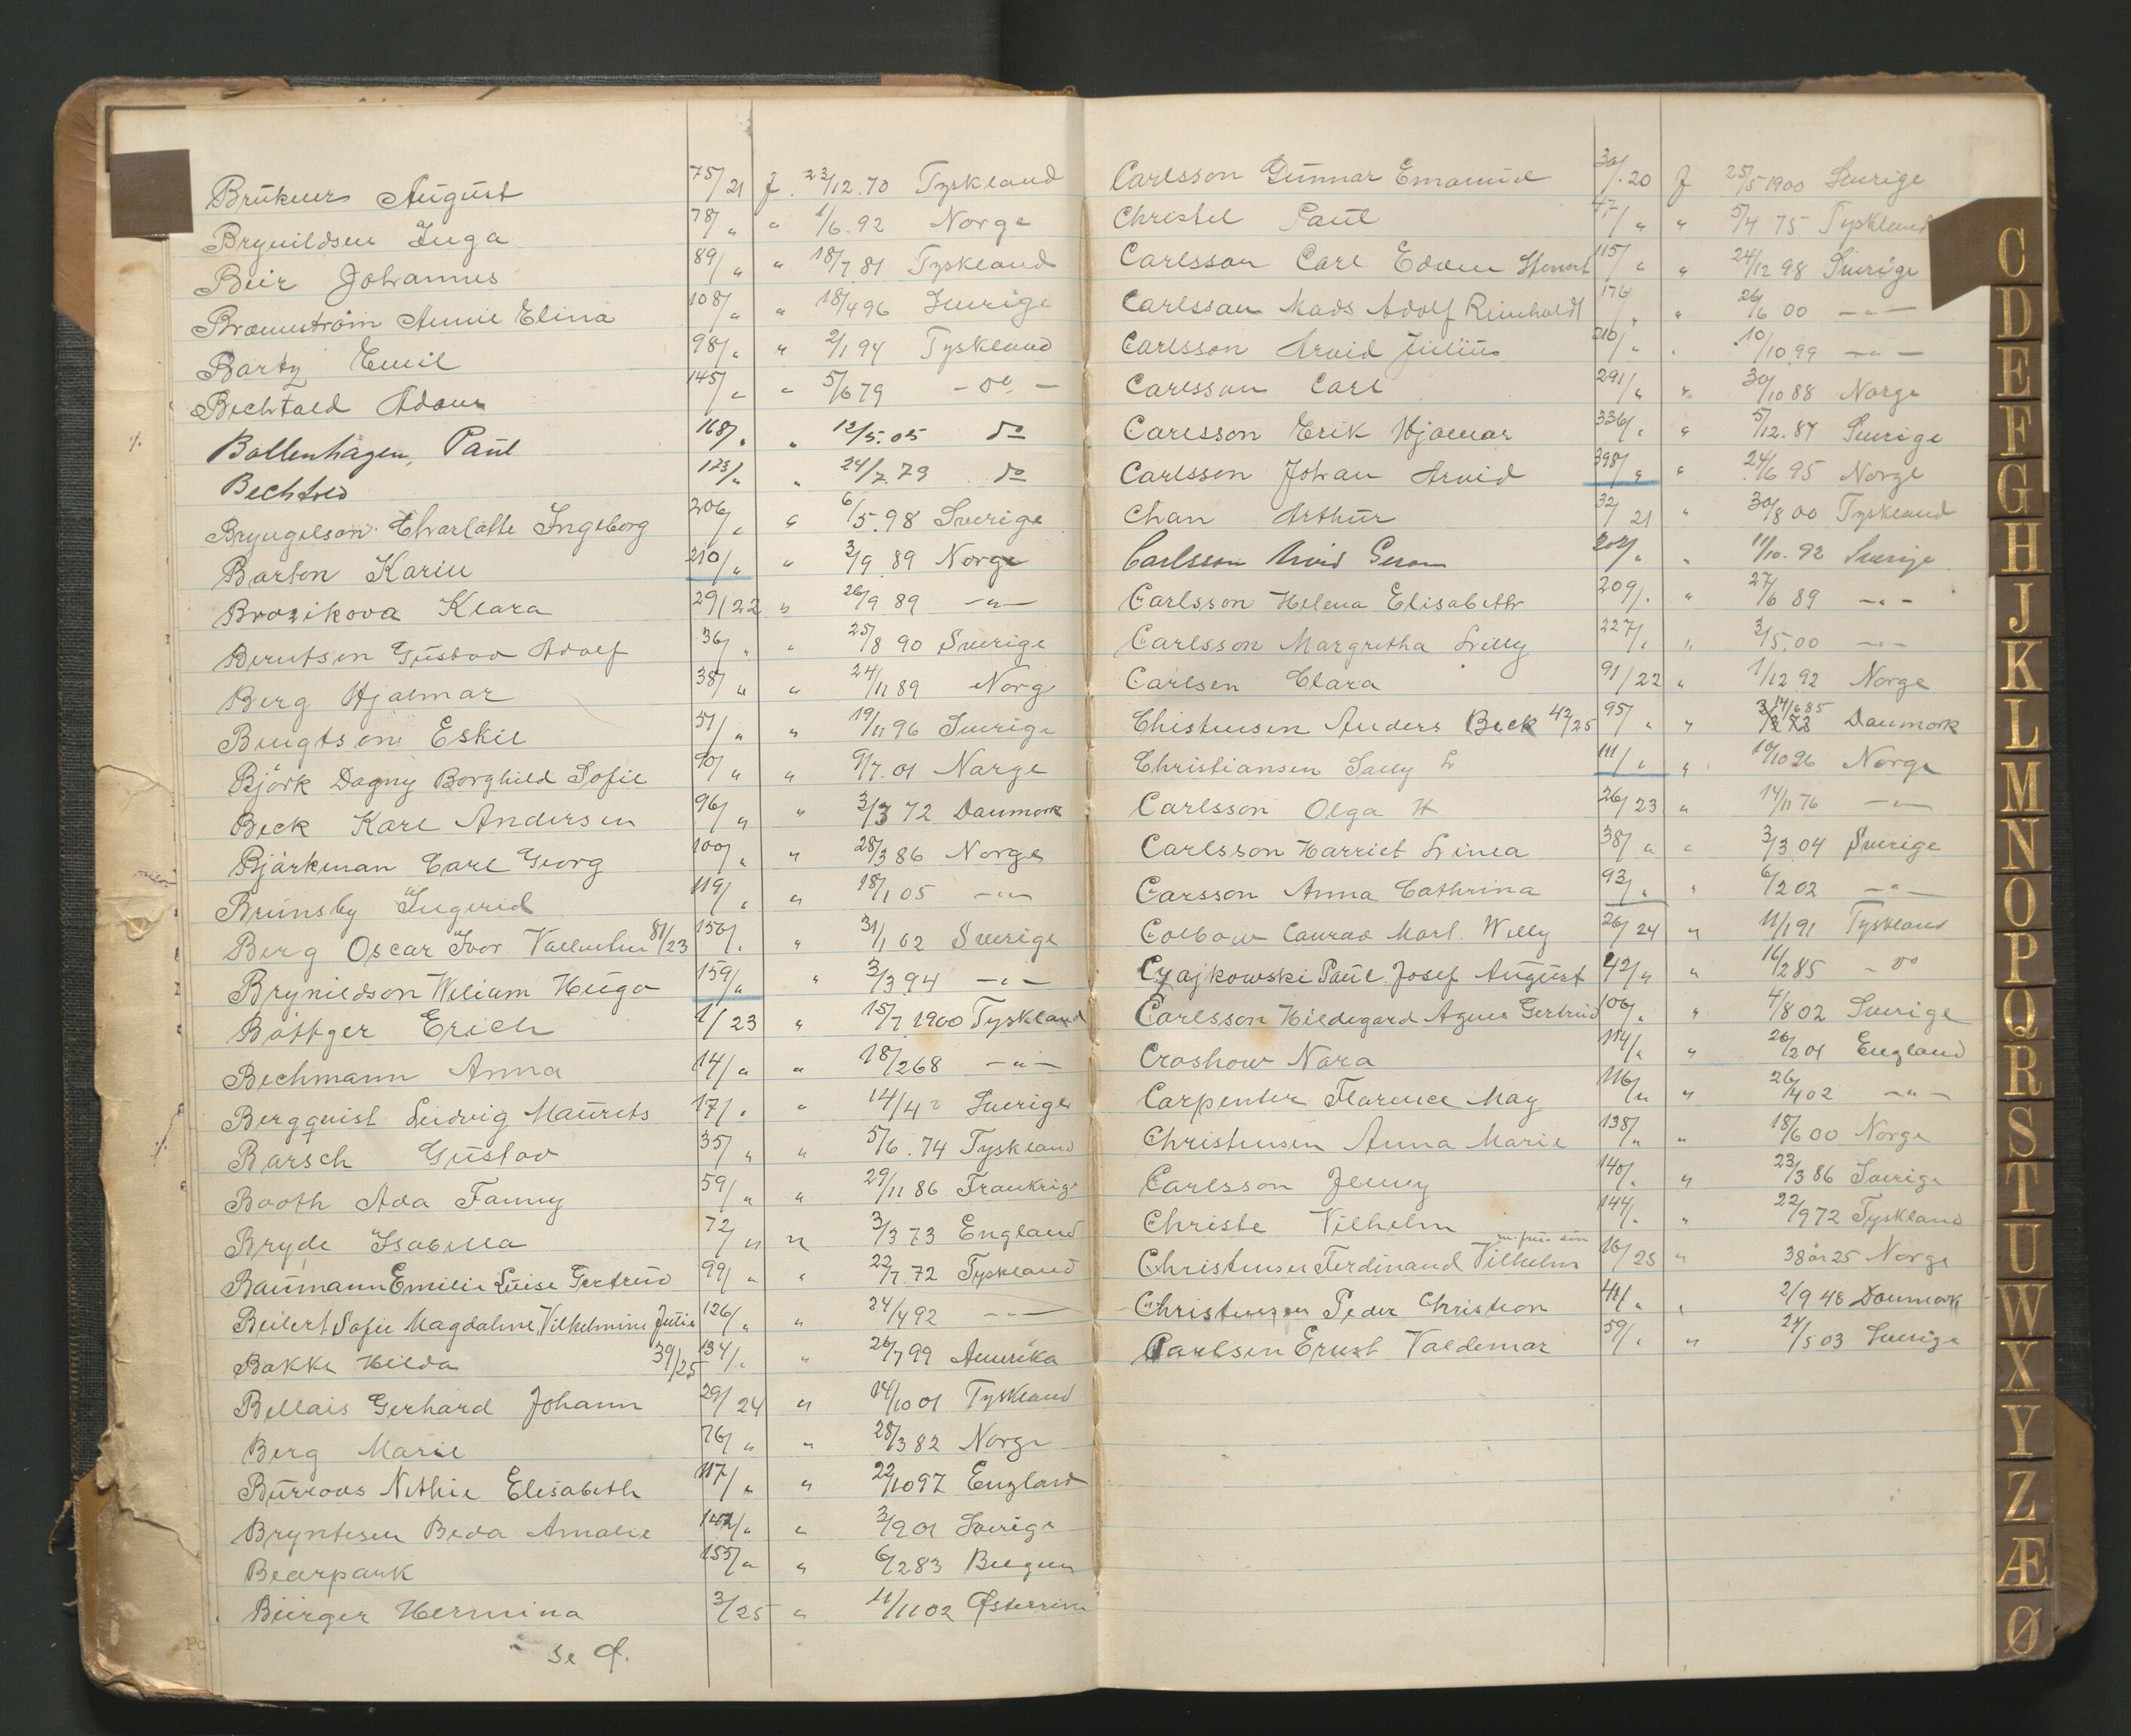 Brükners August 75/21 J. 23/12.70 Tyskland
Brynildsen Inga 78/" " 1/6.92 Norge
Beir Johannes 89/" " 18/7 81 Tyskland
Annie Elina 108/" " 18/4 96 Sverige
Bartz Emil 98/" " 2/1 94 Tyskland
Bechtold Adam 145/" " 5/6 79 - do -
Bollenhagen, Paul 168/" " 12/5.05 do
Bechtold 123/" " 24/7 79 do
Bryngelson Charlotte Ingeborg 206/" " 6/5.98 Sverige
Barton Karin 210/" " 3/9 89 Norge
Brozikova Klara 29/22 " 26/9 89 -"-
Berntsen Gustav Adolf 36/" " 25/8 90 Sverige
Berg Hjalmar 38/" " 24/11 89 Norg
Bengtson Eskil 51/" " 19/11 96 Sverige
Björk Dagny Borghild Sofie 90/" " 9/7.01 Norge
Beck Karl Andersen 96/" " 3/3 72 Danmark
Bjärkman Carl Georg 100/" " 28/3 86 Norge
Brunsby Ingerid 119/" " 18/1 05 -"-
Berg Oscar Ivor 81/23 156/" " 31/1 02 Sverige
Brynildson Wilium Hugo 159/" " 3/3 94 -"-
Böttger Erich 1/23 " 15/7 1900 Tyskland
Bechmann Anna 14/" " 18/2 68 -"-
Bergquist Ludvig Maurits 17/" " 14/4 Sverige
Barsch Gustav 35/" " 5/6.74 Tyskland
Booth Ada Fanny 59/" " 29/11 86 Frankrige
Bryde Isabella 72/" " 3/3 73 England
Baumann Emilie Luise Gertrud 99/" " 22/7.72 Tyskland
Beilert Sofie Magdalene, Vilhelmine Julie 126/" " 24/4 92 -"-
Bakke Hilda 39/25 134/" " 26/7 99 Amerika
Bellais Gerhard Johann 29/24 " 14/10 01 Tyskland
Berg Marie 76/" " 28/3 82 Norge
Burrows Nethie Elisabeth 117/" " 22/10 97 England
Bryntesen Beda Amalie 142/" " 3/9 01 Sverige
Bearpark 155/" " 6/2 83
Bürger Hermina 3/25 " 11/11 02
se
Carlsson Gunnar Emanuel 30/.20 J 25/5 1900 Sverige
Christel Paul 77/" " 5/4 75 Tyskland
Carlsson Carl Edvin 115/" " 24/12 98 Sverige
Carlsson Mads Adolf Reinholdt 176/" " 26/6 00 -"-
Carlsson Arvid Julius 210/" " 10/10 99 -"-
Carlsson Carl 291/" " 30/10 88 Norge
Carlsson Erik Hjalmar 336/" " 5/12.87 Sverige
Carlsson Johan Arvid 398/" " 24/6 95 Norge
Chan Arthur 32/21 " 30/8 00 Tyskland
Carlsson Arvid 202/" " 11/10.92 Sverige
Carlsson Helena Elisabeth 209/" " 27/6 89 -"-
Carlsson Margretha Lilly 227/" " 3/5.00 -"-
Carlsen Clara 91/22 " 1/12 92 Norge
Chistensen Anders Beck 42/25 95/" " 14/6 85 Danmark
Christiansen Sally L 111/" " 10/10 96 Norge
Carlsson Olga H 26/23 " 14/11 76 -"-
Carlsson Harriet Linea 38/" " 3/3 04 Sverige
Carsson Anna Cathrina 93/" " 6/2 02 -"-
Colbow Conrad Marl. Willy 26/24 " 11/1 91 Tyskland
Czajkowski Paul Josef August 42/" " 16/2 85 - do
Carlsson Hildegard Agnes Gertrud 106/" " 4/8 02 Sverige
Croshow Nora 114/" " 26/2 01 England
Carpenter Florence May 116/" " 26/4 02 -"-
Christensen Anna Marie 138/" " 18/6 00 Norge
Carlsson Jenny 140/" " 23/3 86 Sverige
Christe Vilhelm 144/" " 22/9 72 Tyskland
Christensen Ferdinand Vilhelm 16/25 " 38 år 25 Norge
Christensen Peder Christian 41/" " 2/9 48 Danmark
Carlsen Ernst Valdemar 59/" " 24/5 03 Sverige
C
D
E
F
G
H
J
K
L
M
N
O
P
Q
R
S
T
U
W
X
Y
Z
Æ
Ø